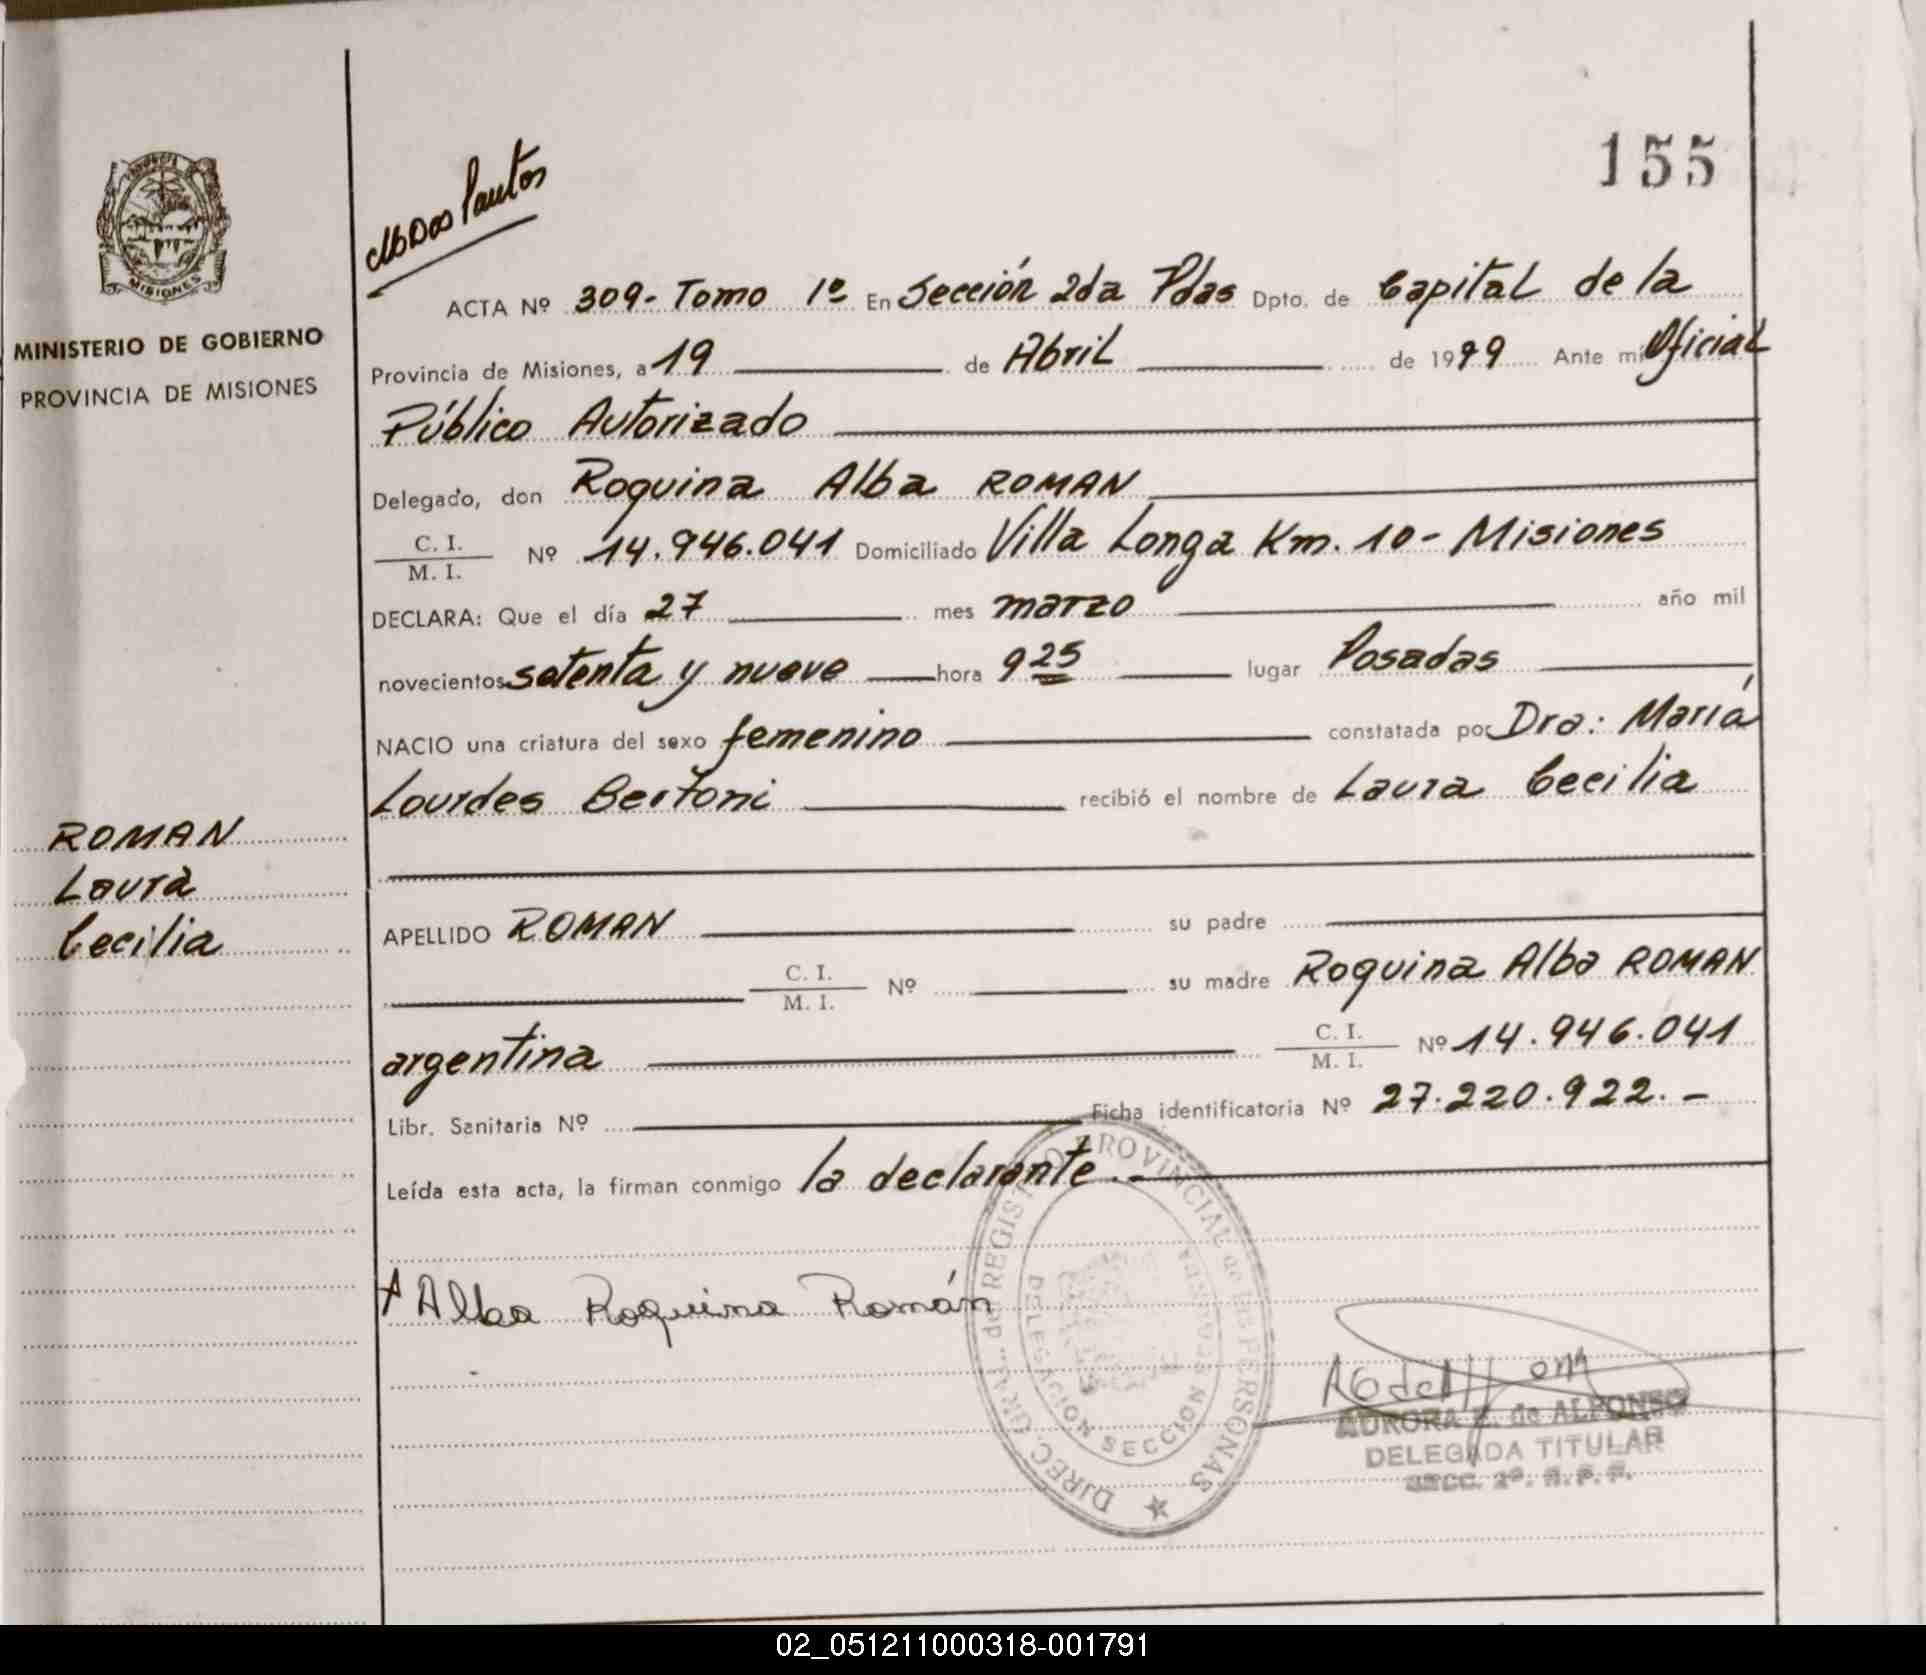 155
MISIONES
MINISTERIO DE GOBIERNO
PROVINCIA DE MISIONES
ACTA Nº 309- Tomo 1º En Sección 2da Pdas Dpto. de Capital de la
Provincia de Misiones, a 19 de Abril de 1979 Ante mí Oficial
Público Autorizado
Delegado, don Roquina Alba ROMAN
C. I.
M. I. Nº 14.946.041 Domiciliado Villa Longa Km. 10- Misiones
DECLARA: Que el día 27 mes marzo año mil
novecientos setenta y nueve hora 9 25 lugar Posadas
NACIO una criatura del sexo femenino constatada por Dra: María
Lourdes Bertoni recibió el nombre de Laura Cecilia
ROMAN
Laura
Cecilia
APELLIDO ROMAN su padre
C. I.
M. I. Nº su madre Roquina Alba ROMAN
argentina C. I.
M. I. Nº 14.946.041
Libr. Sanitaria Nº Ficha identificatoria Nº 27.220.922.-
Leída esta acta, la firman conmigo la declarante.-
Alba Roquina Román
DIREC. GRAL. del REGISTRO PROVINCIAL de las PERSONAS
DELEGACION SECCION
AURORA de ALFONSO
DELEGADA TITULAR
SECC. 2ª.
02_051211000318-001791